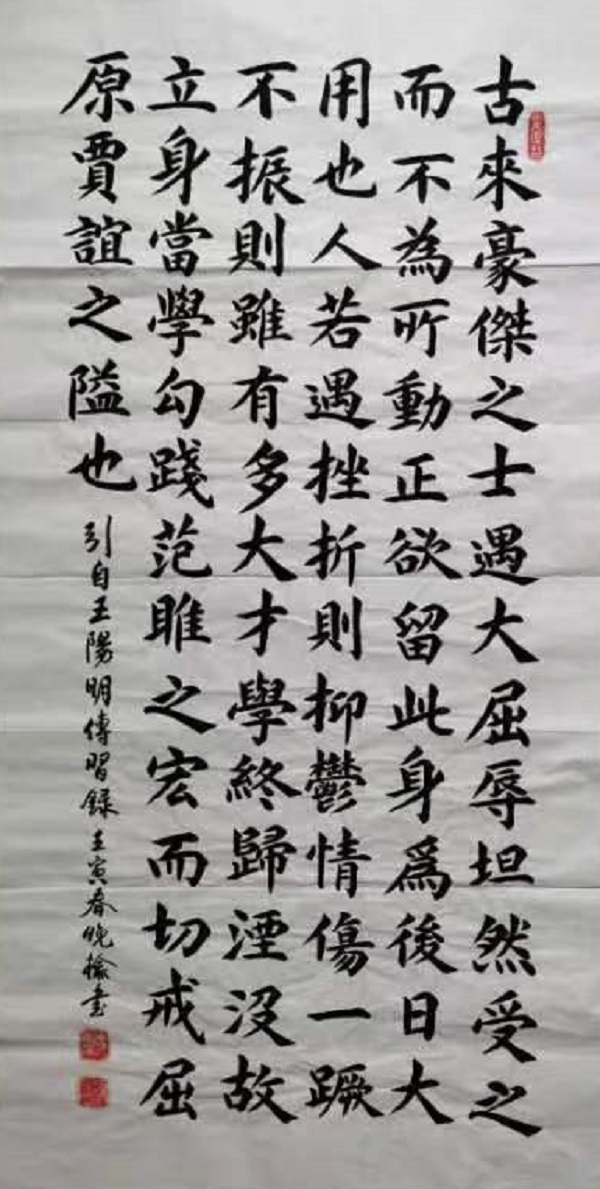 古來豪傑之士遇大屈辱坦然受之
而不為所動正欲留此身爲後日大
用也人若遇挫折則抑鬱情傷一蹶
不振則雖有多大才學終歸湮沒故
立身當學勾踐范雎之宏而切戒屈
原賈誼之隘也
引自王陽明傳習錄壬寅春晚榆書